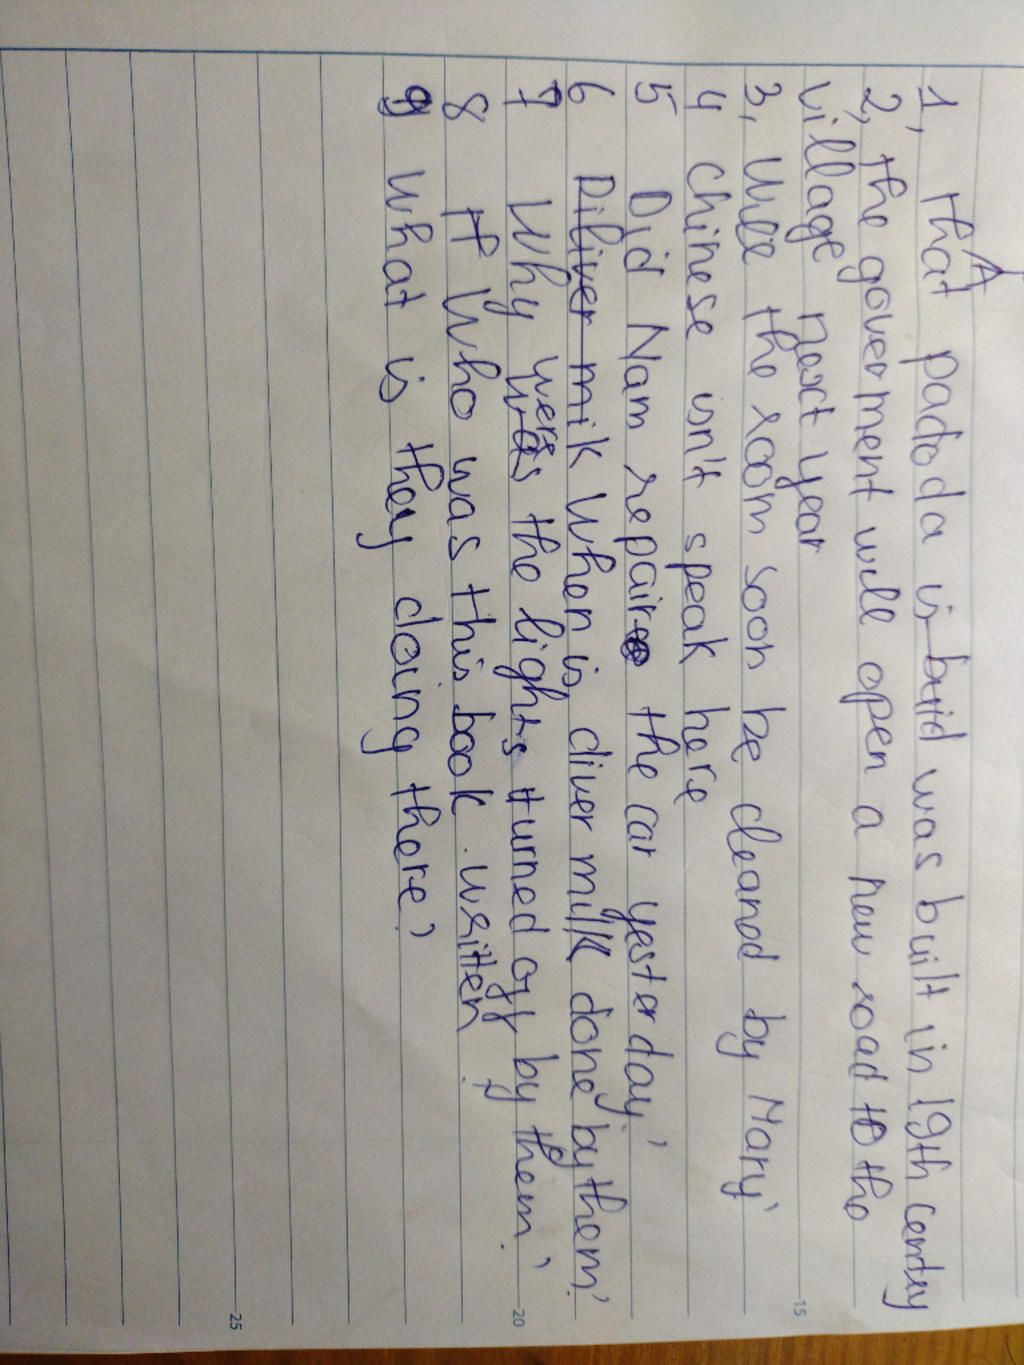 A
1, that padoda is buid was built in 19th centuy
2, the goverment will open a new road to the
village next year
3, Will the room soon be cleaned by Mary?
4 Chinese isn't speak here
5 Did Nam repair the car yesterday?
6 Diliver mik When is diver milk done by them?
7 Why were was the lights turned off by them?
8 It Who was this book written
9 What is they doing there?
15
20
25